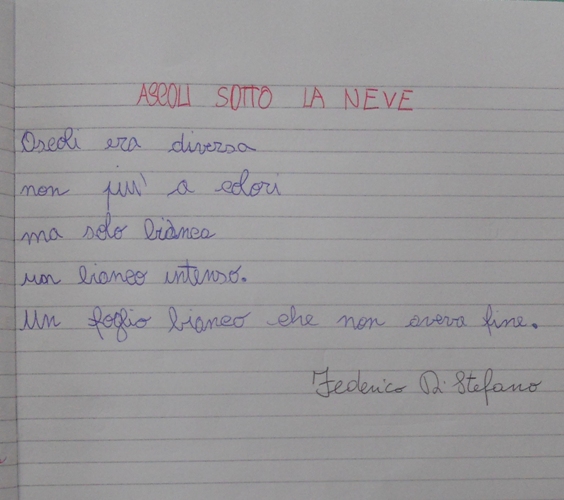 ASCOLI SOTTO LA NEVE
Ascoli era diversa
non piu' a colori
ma solo bianca
un bianco intenso.
Un foglio bianco che non aveva fine.
Federico Di Stefano